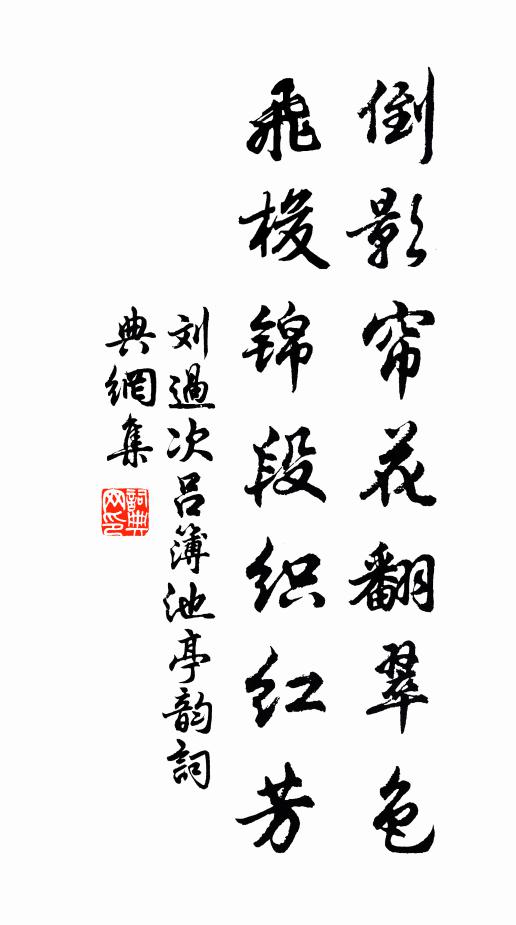 倒影帘花翻翠色
飞梭锦段织红芳
刘過次吕簿池亭韵詞
典網集
詞典网印